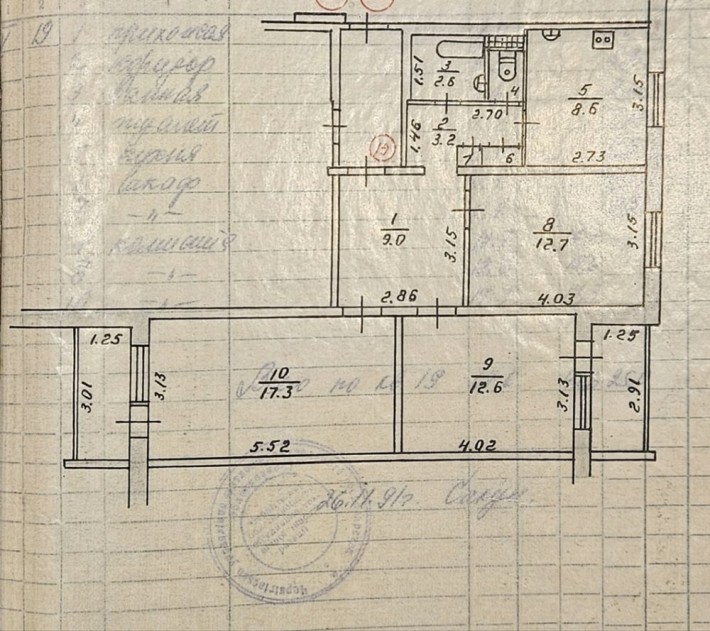 19 1 прихожая
2 коридор
3 ванная
4 туалет
кухня
шкаф
—"—
комната
—"—
—"—
1.51
3
2.6
4
5
8.6
3.15
2.73
1.46
2
3.2
2.70
7
6
19
1
9.0
3.15
2.86
8
12.7
3.15
4.03
1.25
3.01
3.13
10
17.3
5.52
9
12.6
4.02
3.13
1.25
2.91
по кв 19
26.11.91г